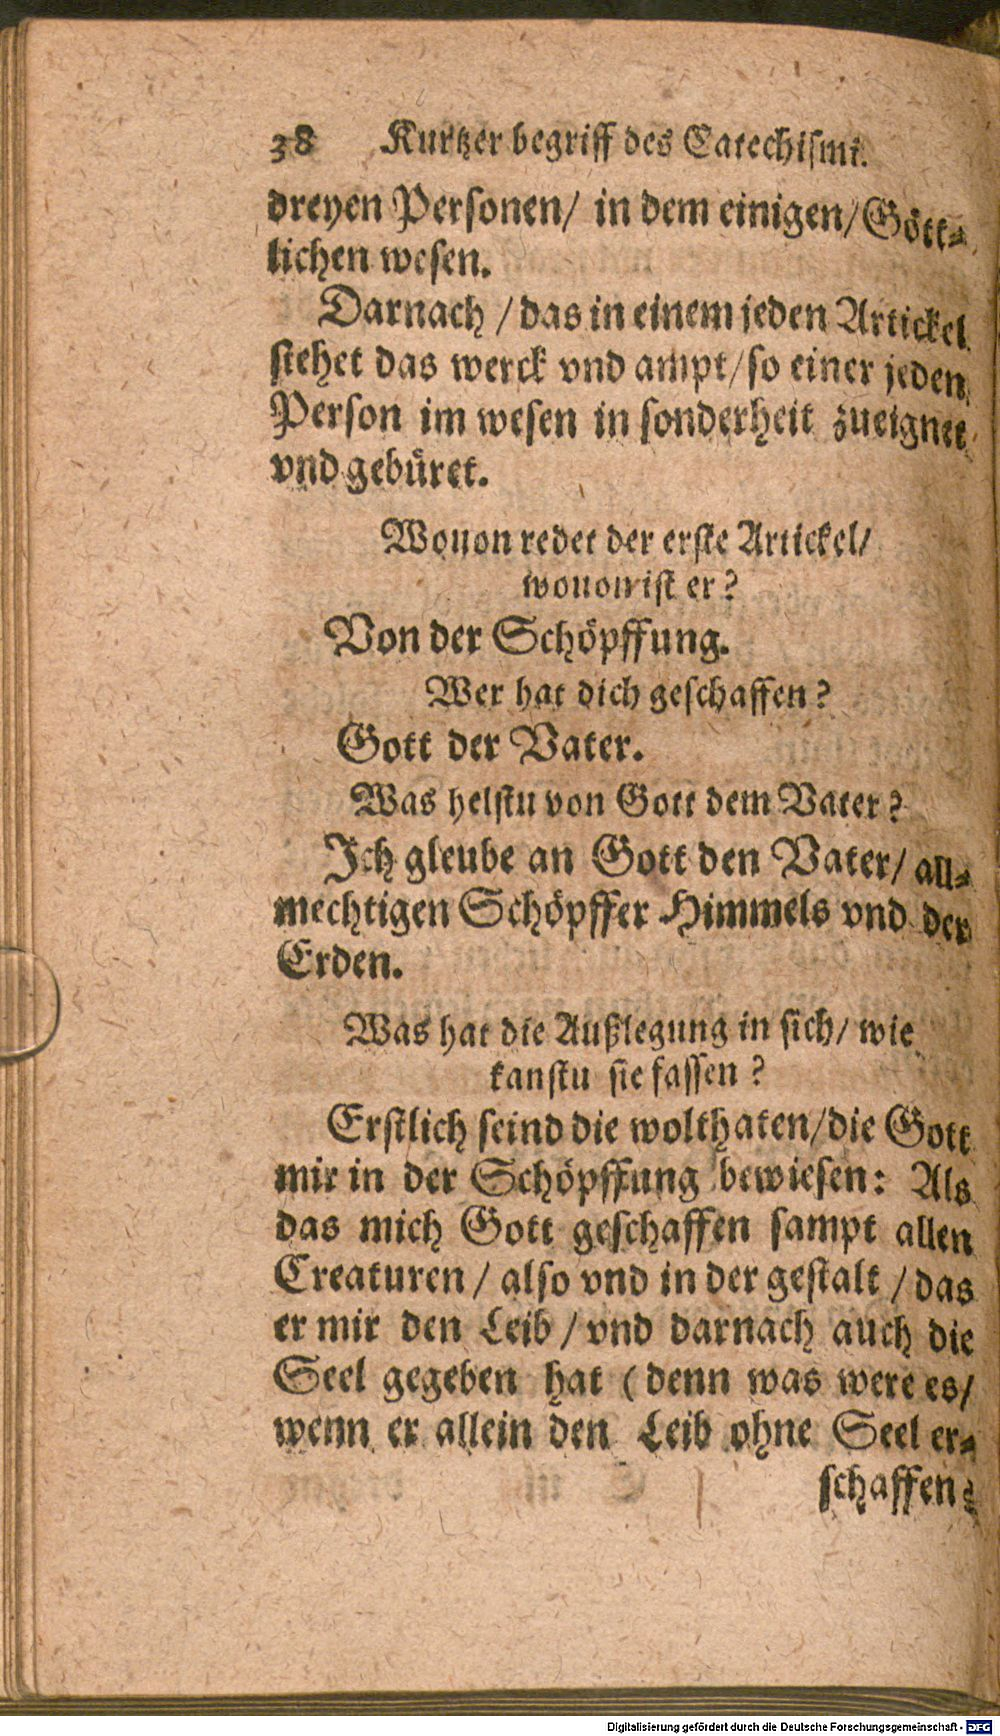 38 Kurtzer begriff des Catechismi.
dreyen Personen/ in dem einigen/ Gött-
lichen wesen.
Darnach / das in einem jeden Artickel
stehet das werck vnd ampt/ so einer jeden
Person im wesen in sonderheit zueignet
vnd gebüret.
Wouon redet der erste Artickel/
wouon ist er?
Von der Schöpffung.
Wer hat dich geschaffen?
Gott der Vater.
Was helstu von Gott dem Vater?
Ich gleube an Gott den Vater/ all-
mechtigen Schöpffer Himmels vnd der
Erden.
Was hat die Außlegung in sich/ wie
kanstu sie fassen?
Erstlich seind die wolthaten/ die Gott
mir in der Schöpffung bewiesen: Als
das mich Gott geschaffen sampt allen
Creaturen / also vnd in der gestalt / das
er mir den Leib / vnd darnach auch die
Seel gegeben hat (denn was were es/
wenn er allein den Leib ohne Seel er-
schaffen
Digitalisierung gefördert durch die Deutsche Forschungsgemeinschaft - DFG